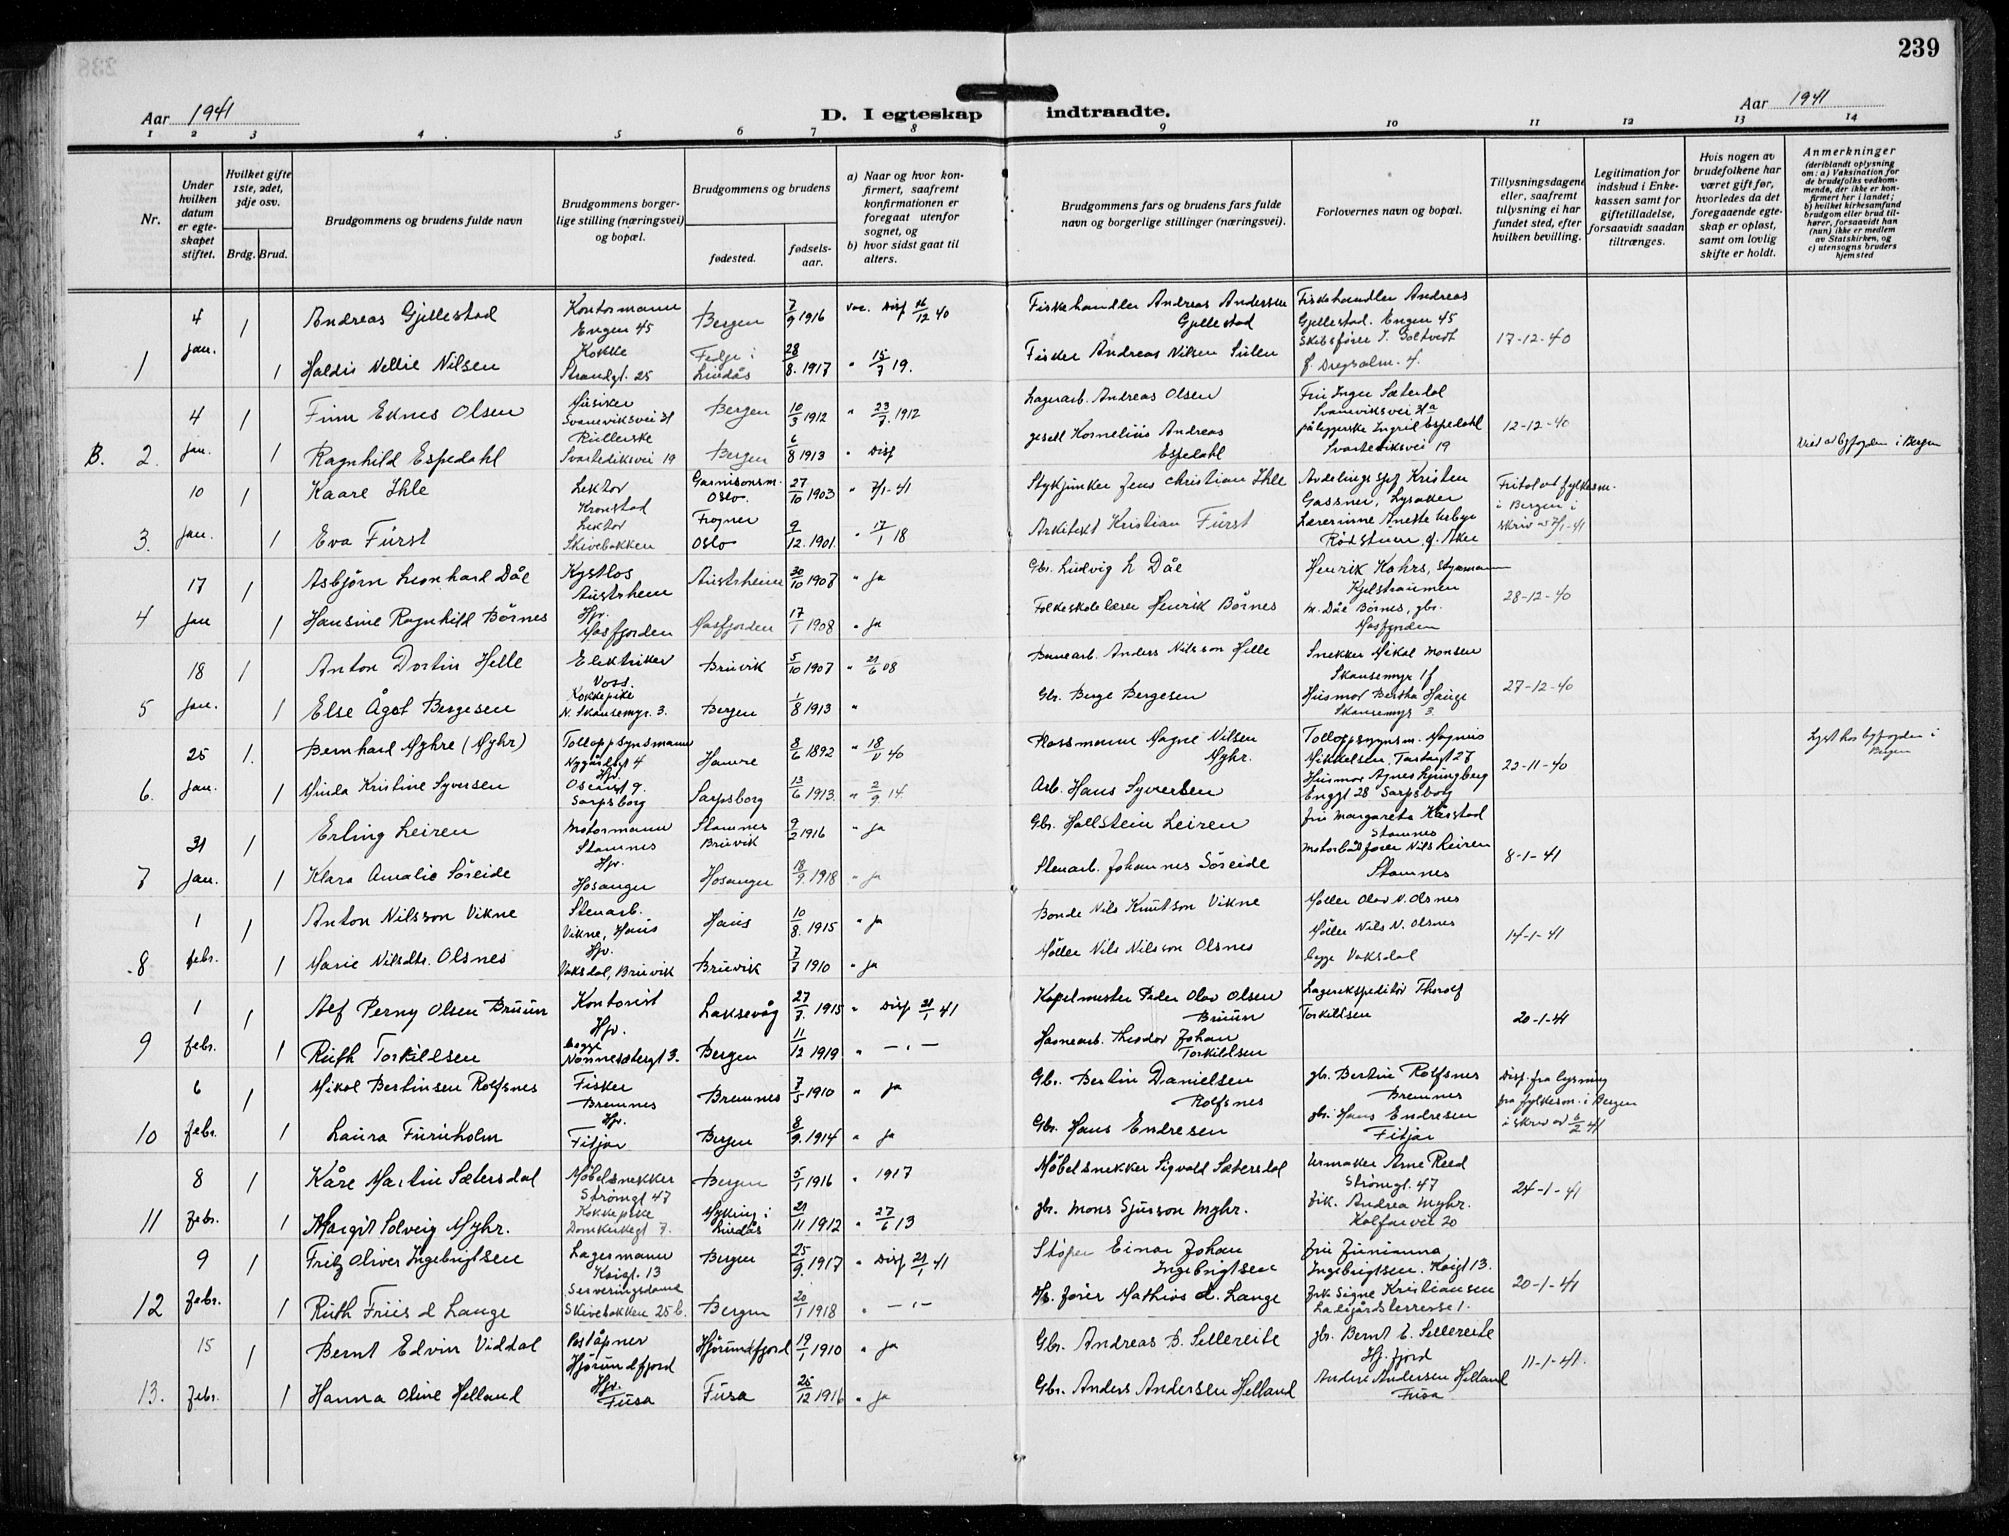 239
Aar 1941
D. I egteskap indtraadte.
Aar 1941
1 2 3 4 5 6 7 8 9 10 11 12 13 14
Nr.
Under hvilken datum er egteskapet stiftet.
Hvilket gifte 1ste, 2det, 3dje osv.
Brdg. Brud.
Brudgommens og brudens fulde navn
Brudgommens borgerlige stilling (næringsvei) og bopæl.
Brudgommens og brudens
fødested.
fødselsaar.
a) Naar og hvor konfirmert, saafremt konfirmationen er foregaat utenfor sognet, og
b) hvor sidst gaat til alters.
Brudgommens fars og brudens fars fulde navn og borgerlige stillinger (næringsvei).
Forlovernes navn og bopæl.
Tillysningsdagene eller, saafremt tillysning ei har fundet sted, efter hvilken bevilling.
Legitimation for indskud i Enkekassen samt for giftetilladelse, forsaavidt saadan tiltrænges.
Hvis nogen av brudefolkene har været gift før, hvorledes da det foregaaende egteskap er opløst, samt om lovlig skifte er holdt.
Anmerkninger
(deriblandt oplysning om: a) Vaksination for de brudefolks vedkommende, der ikke er konfirmert her i landet; b) hvilket kirkesamfund brudgom eller brud tilhører, forsaavidt han (hun) ikke er medlem av Statskirken, og c) utensogns bruders hjemsted
1 4 jan. 1 Andreas Gjellestad Kontormann Engen 45 Bergen 7/9 1916 vac. Disp 16/12 40 Fiskehandler Andreas Andersen Gjellestad Fiskehandler Andreas Gjellestad. Engen 45 17-12-40
1 Haldis Nellie Nilsen Kokke Strandgt. 25 Fedje i Lindås 28/8. 1917 " 15/7 19. Fisker Andreas Nilsen Sulen Skibsfører J. Goltvedt
B. 2. 4 jan. 1 Finn Eknes Olsen Musiker Svaneviksvei Bergen 10/3 1912 " 23/7. 1912 Lagerarb. Andreas Olsen Fru Inger Sæterdal Svaneviksvei 12-12-40
1 Ragnhild Espedahl Rullerske Svartediksvei 19 Bergen 6/8 1913 " Disp Kornelius Andreas Espedahl Ingrid Espedahl Svartediksvei 19 Viet av byfogden i Bergen
3. 10 jan. 1 Kaare Ihle Lektor Kronstad Garnisonsm. Oslo. 27/10 1903 " 7/1-41 Stykjunker Jens Christian Ihle Avdelings sjef Kristen Gassner, Lysaker Fritak av fylkesm. i Bergen i skriv av 7/1-41
1 Eva Fürst Lektor Skivebakken Frogner Oslo 9/12. 1901. " 17/1 18 Arkitekt Kristian Fürst Lærerinne Anette Urbye Rødstuen, Aker
4 17 jan 1 Asbjørn Leonhard Dåe Kystlos Austrheim Austrheim 30/10 1907 " ja Gbr. Ludvig L Dåe Henrik Kahrs, styrmann Kjelstraumen 28-12-40
1 Hansine Ragnhild Børnes Hjv. Masfjorden Masfjorden 17/1 1908 " ja Folkeskolelærer Henrik Børnes M. Dåe Børnes, gbr. Masfjorden
5 18 jan. 1 Anton Dortin Helle Elektriker Voss. Bruvik 5/10 1907 " 21/6 08 Banearb. Anders Nilsson Helle Snekker Mikal Monsen Skansemyr 1f 27-12-40
1 Else Ågot Bergesen Kokkepike N. Skansemyr. 3. Bergen 1/8 1913 " Gbr. Berge Bergesen Husmor Bertha Hauge Skansemyr 3.
6. 25 jan. 1. Bernhard Myhre (Myhr) Tolloppsynsmann Nygårdsgt 4 Hamre 8/6 1892 " 18/11 40 Plassmann Magne Nilsen Myhr. Tolloppsynsm. Magnus Mikkelsen, Torborgt 27 22-11-40 Lyst hos byfogden i Bergen
1 Minda Kristine Syversen Hjv. Oscarsgt 9. Sarpsborg Sarpsborg 13/6 1913. " 2/9. 14. Arb. Hans Syversen Husmor Agnes Ljungberg Enggt 28 Sarpsborg
7 31 jan. 1 Erling Leiren Motormann Stamnes Stamnes Bruvik 9/2 1916 " ja Gbr. Hallstein Leiren Fru Margareta Kårstad Stamnes 8-1-41
1 Klara Amalie Søreide Hjv. Hosanger Hosanger 18/9. 1918 " ja Stenarb. Johannes Søreide Motorbåtfører Nils Leiren Stamnes
8 1 febr. 1 Anton Nilsson Vikne Stenarb. Vikne, Haus Haus 10/8. 1915 " ja Bonde Nils Knutson Vikne Møller Olav N. Olsnes 14-1-41
1 Marie Nilsdtr. Olsnes Hjv. Vaksdal, Bruvik Bruvik 7/7 1910 " ja Møller Nils Nilsson Olsnes Møller Nils N. Olsnes begge Vaksdal
9 1 febr. 1 Alf Perny Olsen Bruun Kontorist Laksevåg 27/7. 1915 " Disp 21/1 41 Kapelmester Peder Olav Olsen Bruun Lagerekspeditør Thorolf Torkildsen 20-1-41
1 Ruth Torkildsen Hjv. begge Nonnesætergt 3. Bergen 11/12 1919 " — " — Havnearb. Theodor Johan Torkildsen
10 6 febr. 1 Mikal Bertinsen Rolfsnes Fisker Bremnes Bremnes 7/5 1910 " ja Gbr. Bertin Danielsen Rolfsnes gbr. Bertin Rolfsnes Bremnes Disp. fra lysning fra fylkesm. i Bergen i skriv av 6/2 41
1 Laura Furuholm Hjv. Fitjar Bergen 8/9. 1914 " ja Gbr. Hans Endresen gbr. Hans Endresen Fitjar
11 8 febr. 1 Kåre Martin Sætersdal Møbelsnekker Strømgt 47 Bergen 5/1 1916 " 1917 Møbelsnekker Sigvald Sætersdal Urmaker Arne Reed Strømgt. 47 24-1-41
1 Margit Solveig Myhr. Kokkepike Domkirkegt 7. Myking i Lindås 21/11 1912 " 27/6 13 gbr. Mons Sjursson Myhr. Frk. Andrea Myhr. Kalfarvei 20
12 9 febr. 1 Fritz Oliver Ingebrigtsen Lagermann Kroigt. 13 Bergen 25/9. 1917 " Disp 21/1 41 Støper Einar Johan Ingebrigtsen Fru Junianna Ingebrigtsen. 13. 20-1-41
1 Ruth Friis d Lange Serveringsdame Skivebakken 25 b. Bergen 20/1 1918 " — " — fører Mathias d. Lange Frk Signe Kristiansen Ladegårdsterrasse 1.
13. 15 febr. 1 Bernt Edvin Viddal Poståpner Hjørundfjord Hjørundfjord 19/1 1910 " ja Gbr. Andreas B. Sellereite gbr. Bernt E. Sellereite Hj. fjord 11-1-41.
1 Hanna Oline Helland Hjv. Fusa Fusa 25/12 1916 " ja Gbr. Anders Andersen Helland Anders Andersen Helland Fusa